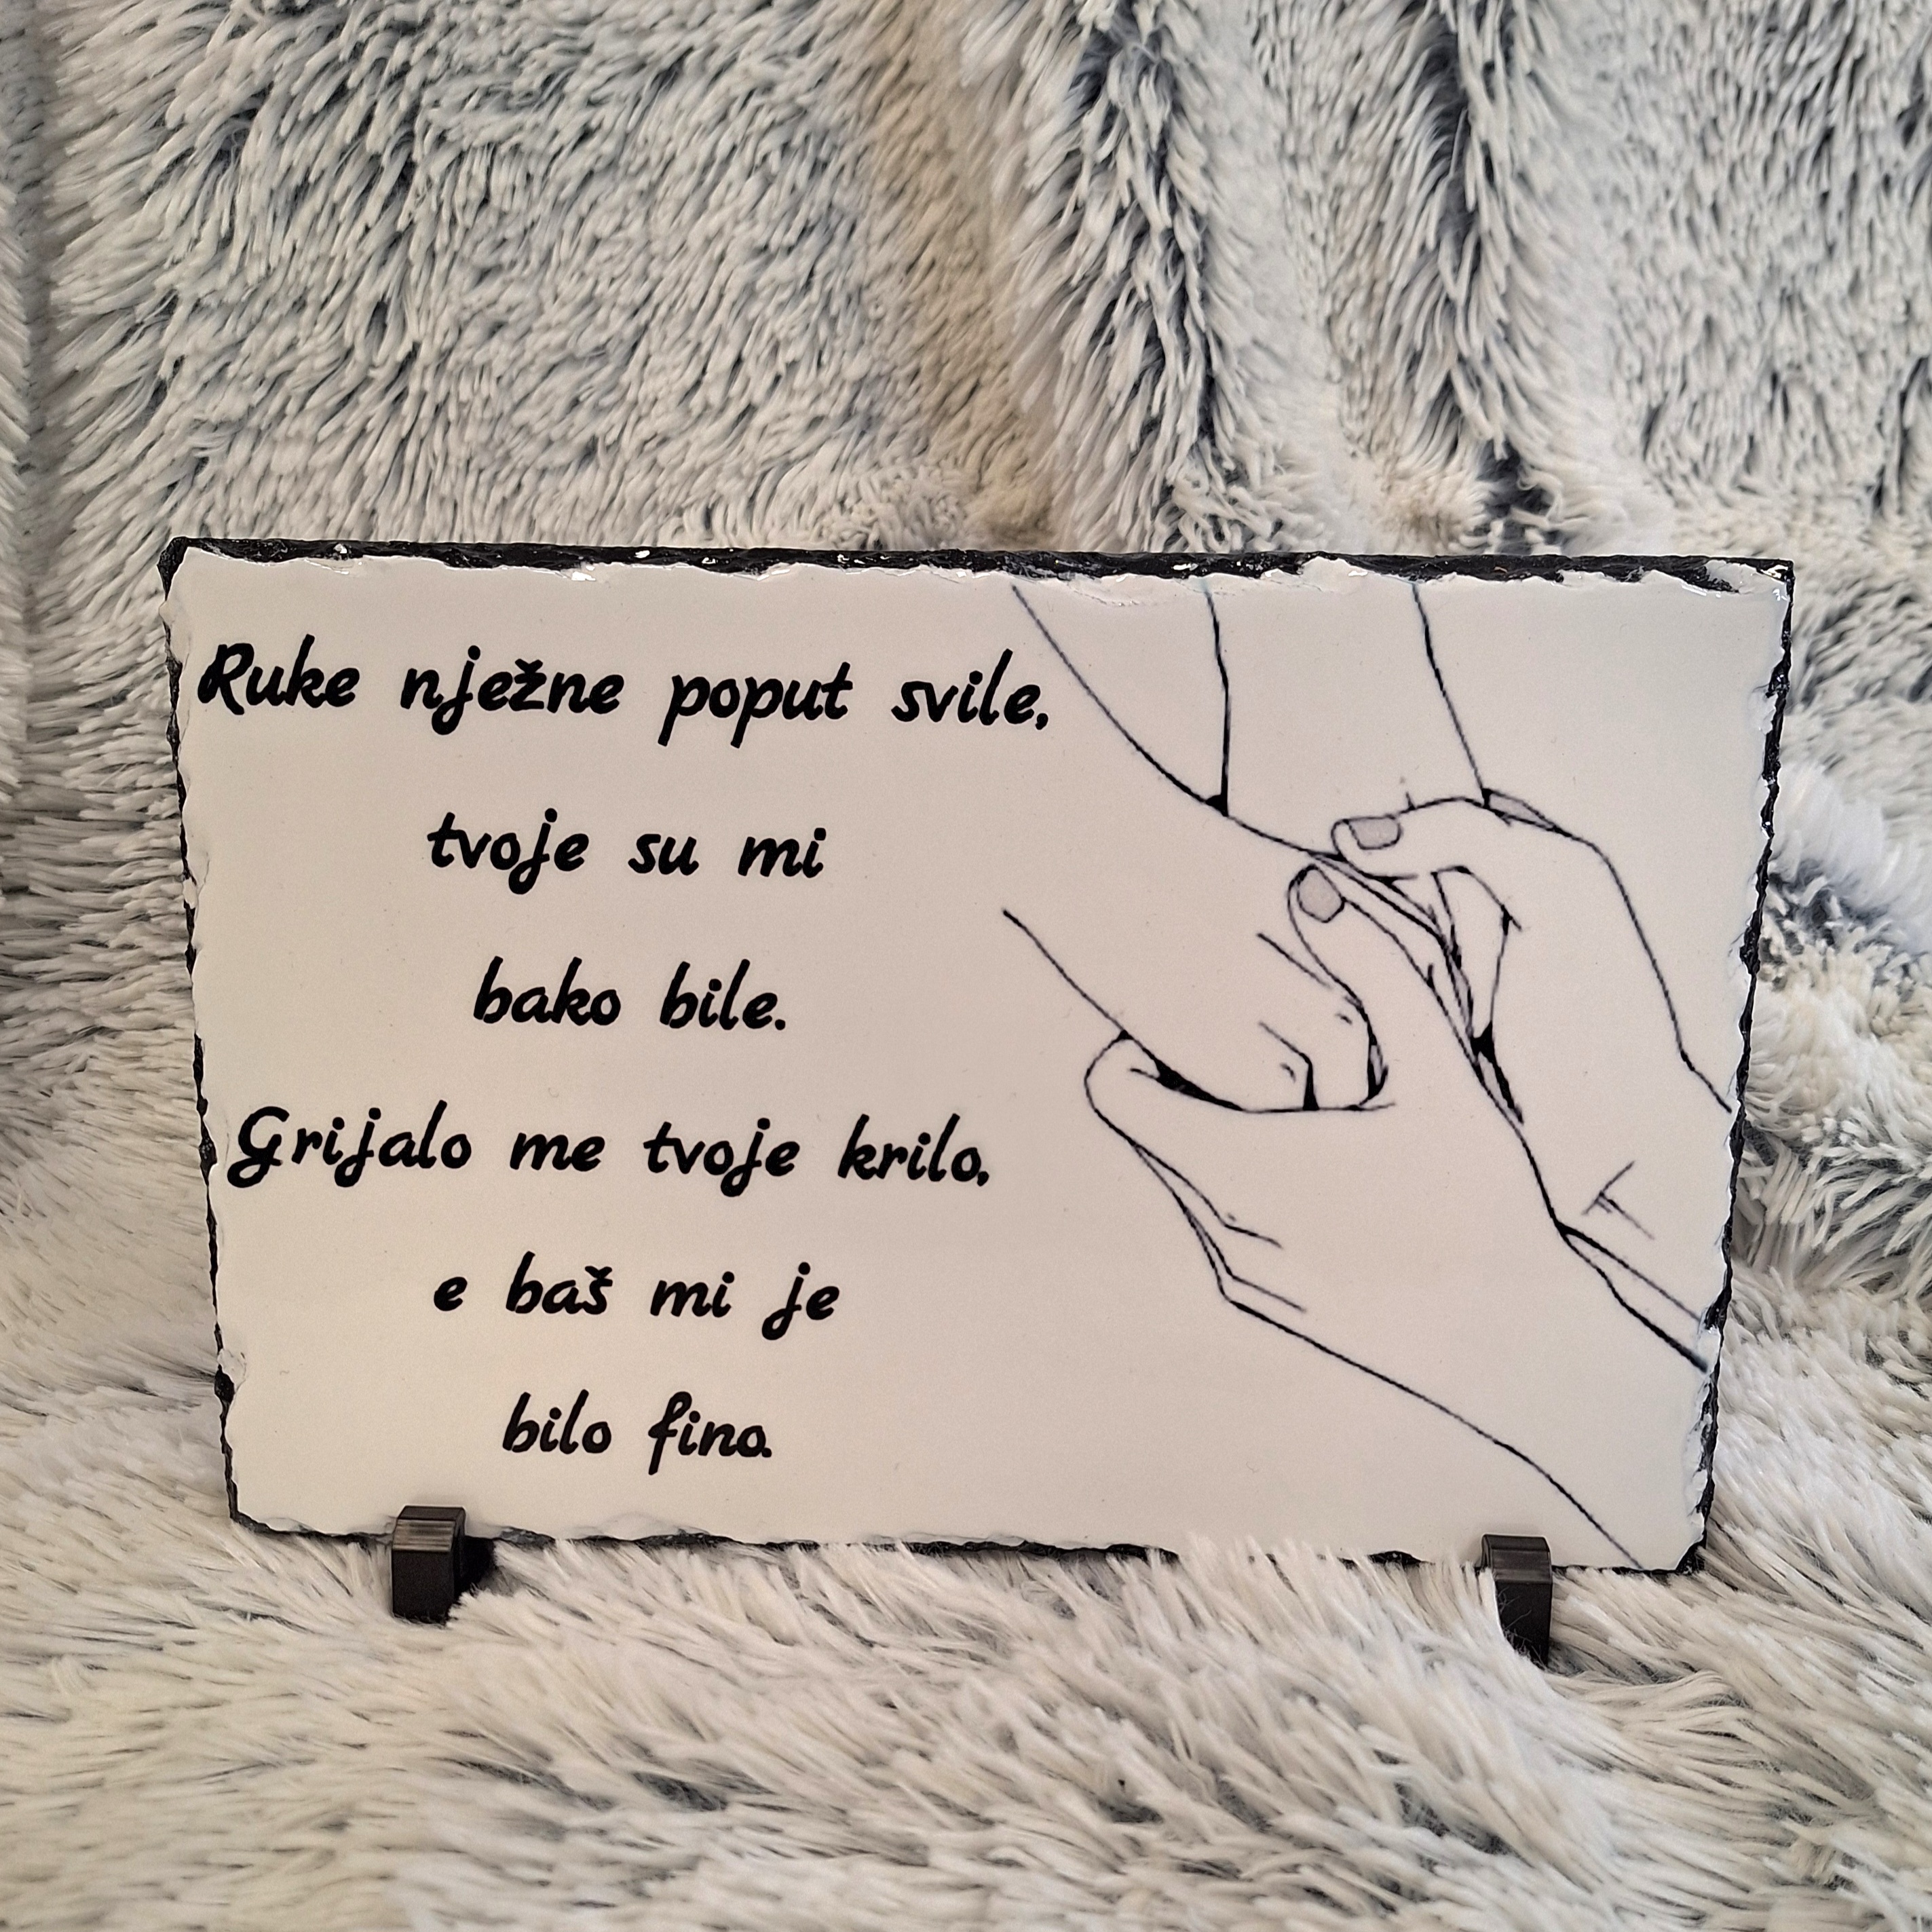 Ruke nježne poput svile,
tvoje su mi
bako bile.
Grijalo me tvoje krilo,
e baš mi je
bilo fino.